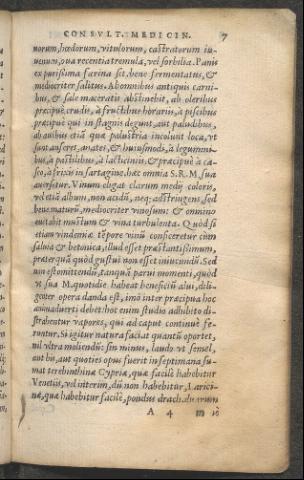 CONSVLT. MEDICIN. 7
uorum, hœdorum, vitulorum, castratorum iu-
uencum, oua recentia tremula, vel sorbilia. Panis
ex purissima farina sit, bene fermentatus, &
mediocriter salitus. Ab omnibus antiquis carni-
bus, & sale maceratis abstinebit, ab oleribus
præcipuè crudis, à fructibus horarijs, à piscibus
præcipuè qui in stagnis degunt, aut paludibus,
ab auibus etiã quæ palustria incolunt loca, vt
sunt anseres, anates, & huiusmodi, à legumini-
bus, à pastillibus, à lacticinijs, & præcipuè à ca-
seo, à frixis in sartagine, hæc omnia S.R.M. sua
auersetur. Vinum eligat clarum medij coloris,
vel etiã album, non acidũ, neq; adstringens, sed
bene maturũ, mediocriter vinosum: & omnino
euitabit mustum & vina turbulenta. Quòd si
etiam vindemiæ tẽpore vinũ conficeretur cum
saluia & betonica, illud esset præstantissimum,
præterquã quòd gustui non esset iniucundũ. Sed
non est omittendũ, tanquã parui momenti, quòd
vt sua M. quotidie habeat beneficiũ alui, dili-
genter opera danda est, imò inter præcipua hoc
animaduerti debet: hoc enim studio adhibito di-
strahentur vapores, qui ad caput continuè fe-
runtur. Si igitur natura faciat quantũ oportet,
nil vltra moliendũ: sin minus, laudo vt semel,
aut bis, aut quoties opus fuerit in septimana su-
mat terebinthinæ Cypriæ, quæ facilè habebitur
Venetijs, vel interim, dũ non habebitur, Larici-
næ, quæ habebitur facilè, pondus drach. duarum
A 4 m iẽ